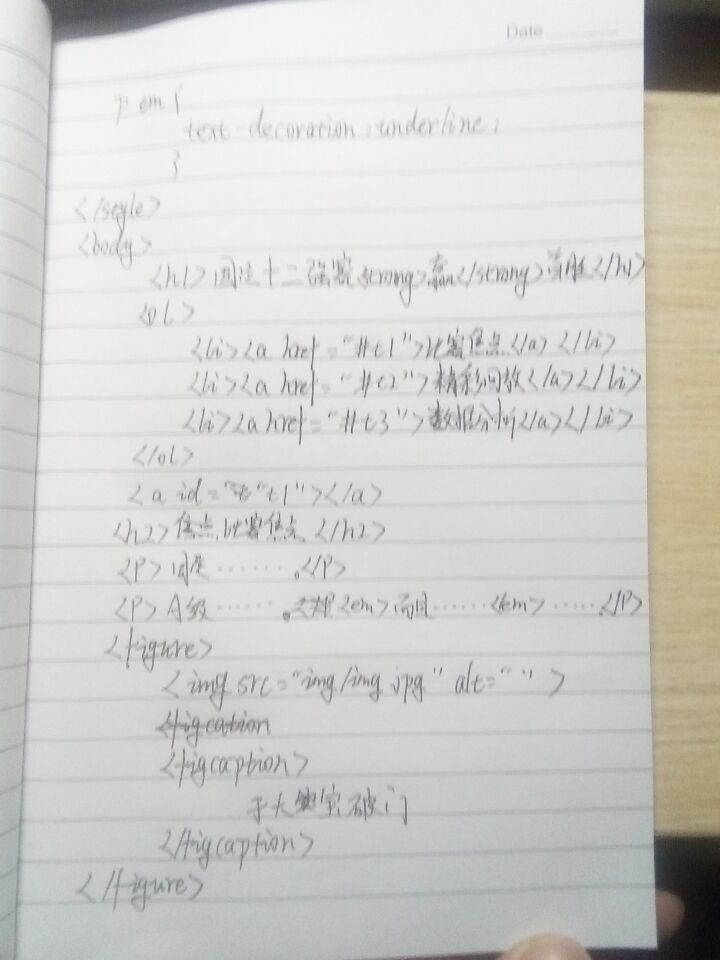 Date
p em {
text-decoration:underline;
}
</style>
<body>
<h1>国足十二强赛<strong>赢</strong>首胜</h1>
<ol>
<li><a href="#t1">比赛焦点</a></li>
<li><a href="#t2">精彩回放</a></li>
<li><a href="#t3">数据分析</a></li>
</ol>
<a id="t1"></a>
<h2>焦点比赛焦点</h2>
<P>国足…….</P>
<P>A级…….<em>而且……<em>…..</P>
<figure>
<img src="img/img.jpg" alt=" ">
<figcaption>
于大宝破门
</figcaption>
</figure>